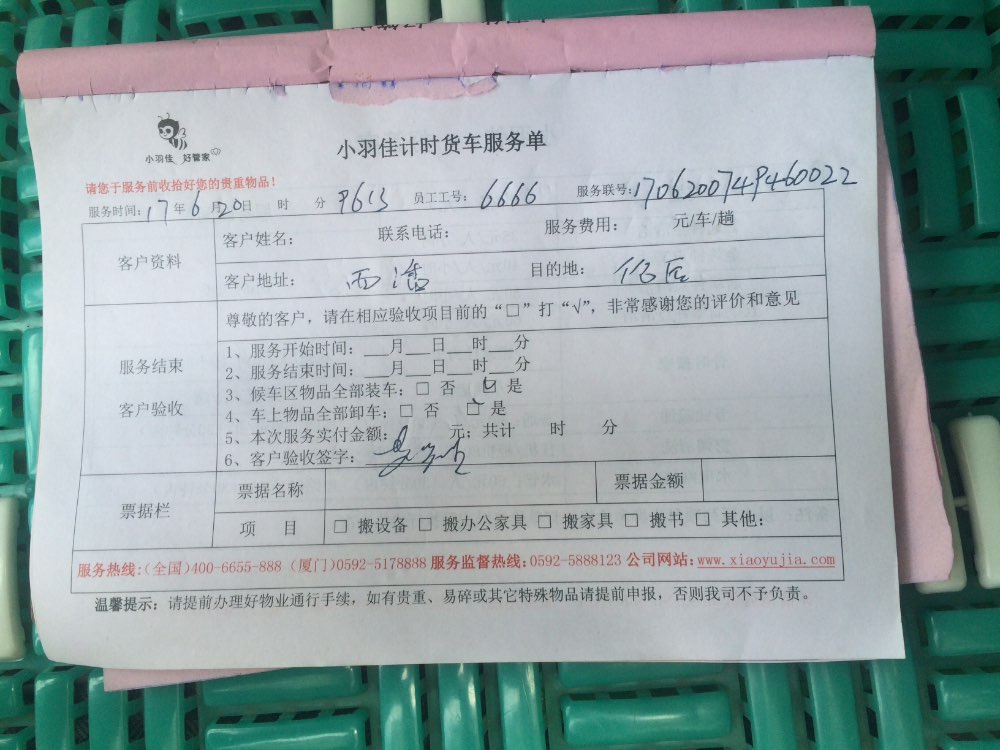 小羽佳 好管家
小羽佳计时货车服务单
请您于服务前收拾好您的贵重物品！
服务时间：17年6月20日 时 分 员工工号：6666 服务联号：1706200749460022
客户资料
客户姓名： 联系电话： 服务费用： 元/车/趟
客户地址： 目的地：
服务结束
客户验收
尊敬的客户，请在相应验收项目前的“□”打“√”，非常感谢您的评价和意见
1、服务开始时间：___月___日___时___分
2、服务结束时间：___月___日___时___分
3、候车区物品全部装车：□ 否 □ 是
4、车上物品全部卸车：□ 否 □ 是
5、本次服务实付金额： 元；共计 时 分
6、客户验收签字：
票据栏
票据名称 票据金额
项 目 □ 搬设备 □ 搬办公家具 □ 搬家具 □ 搬书 □ 其他：
服务热线:(全国)400-6655-888 (厦门)0592-5178888 服务监督热线:0592-5888123 公司网站:www.xiaoyujia.com
温馨提示：请提前办理好物业通行手续，如有贵重、易碎或其它特殊物品请提前申报，否则我司不予负责。